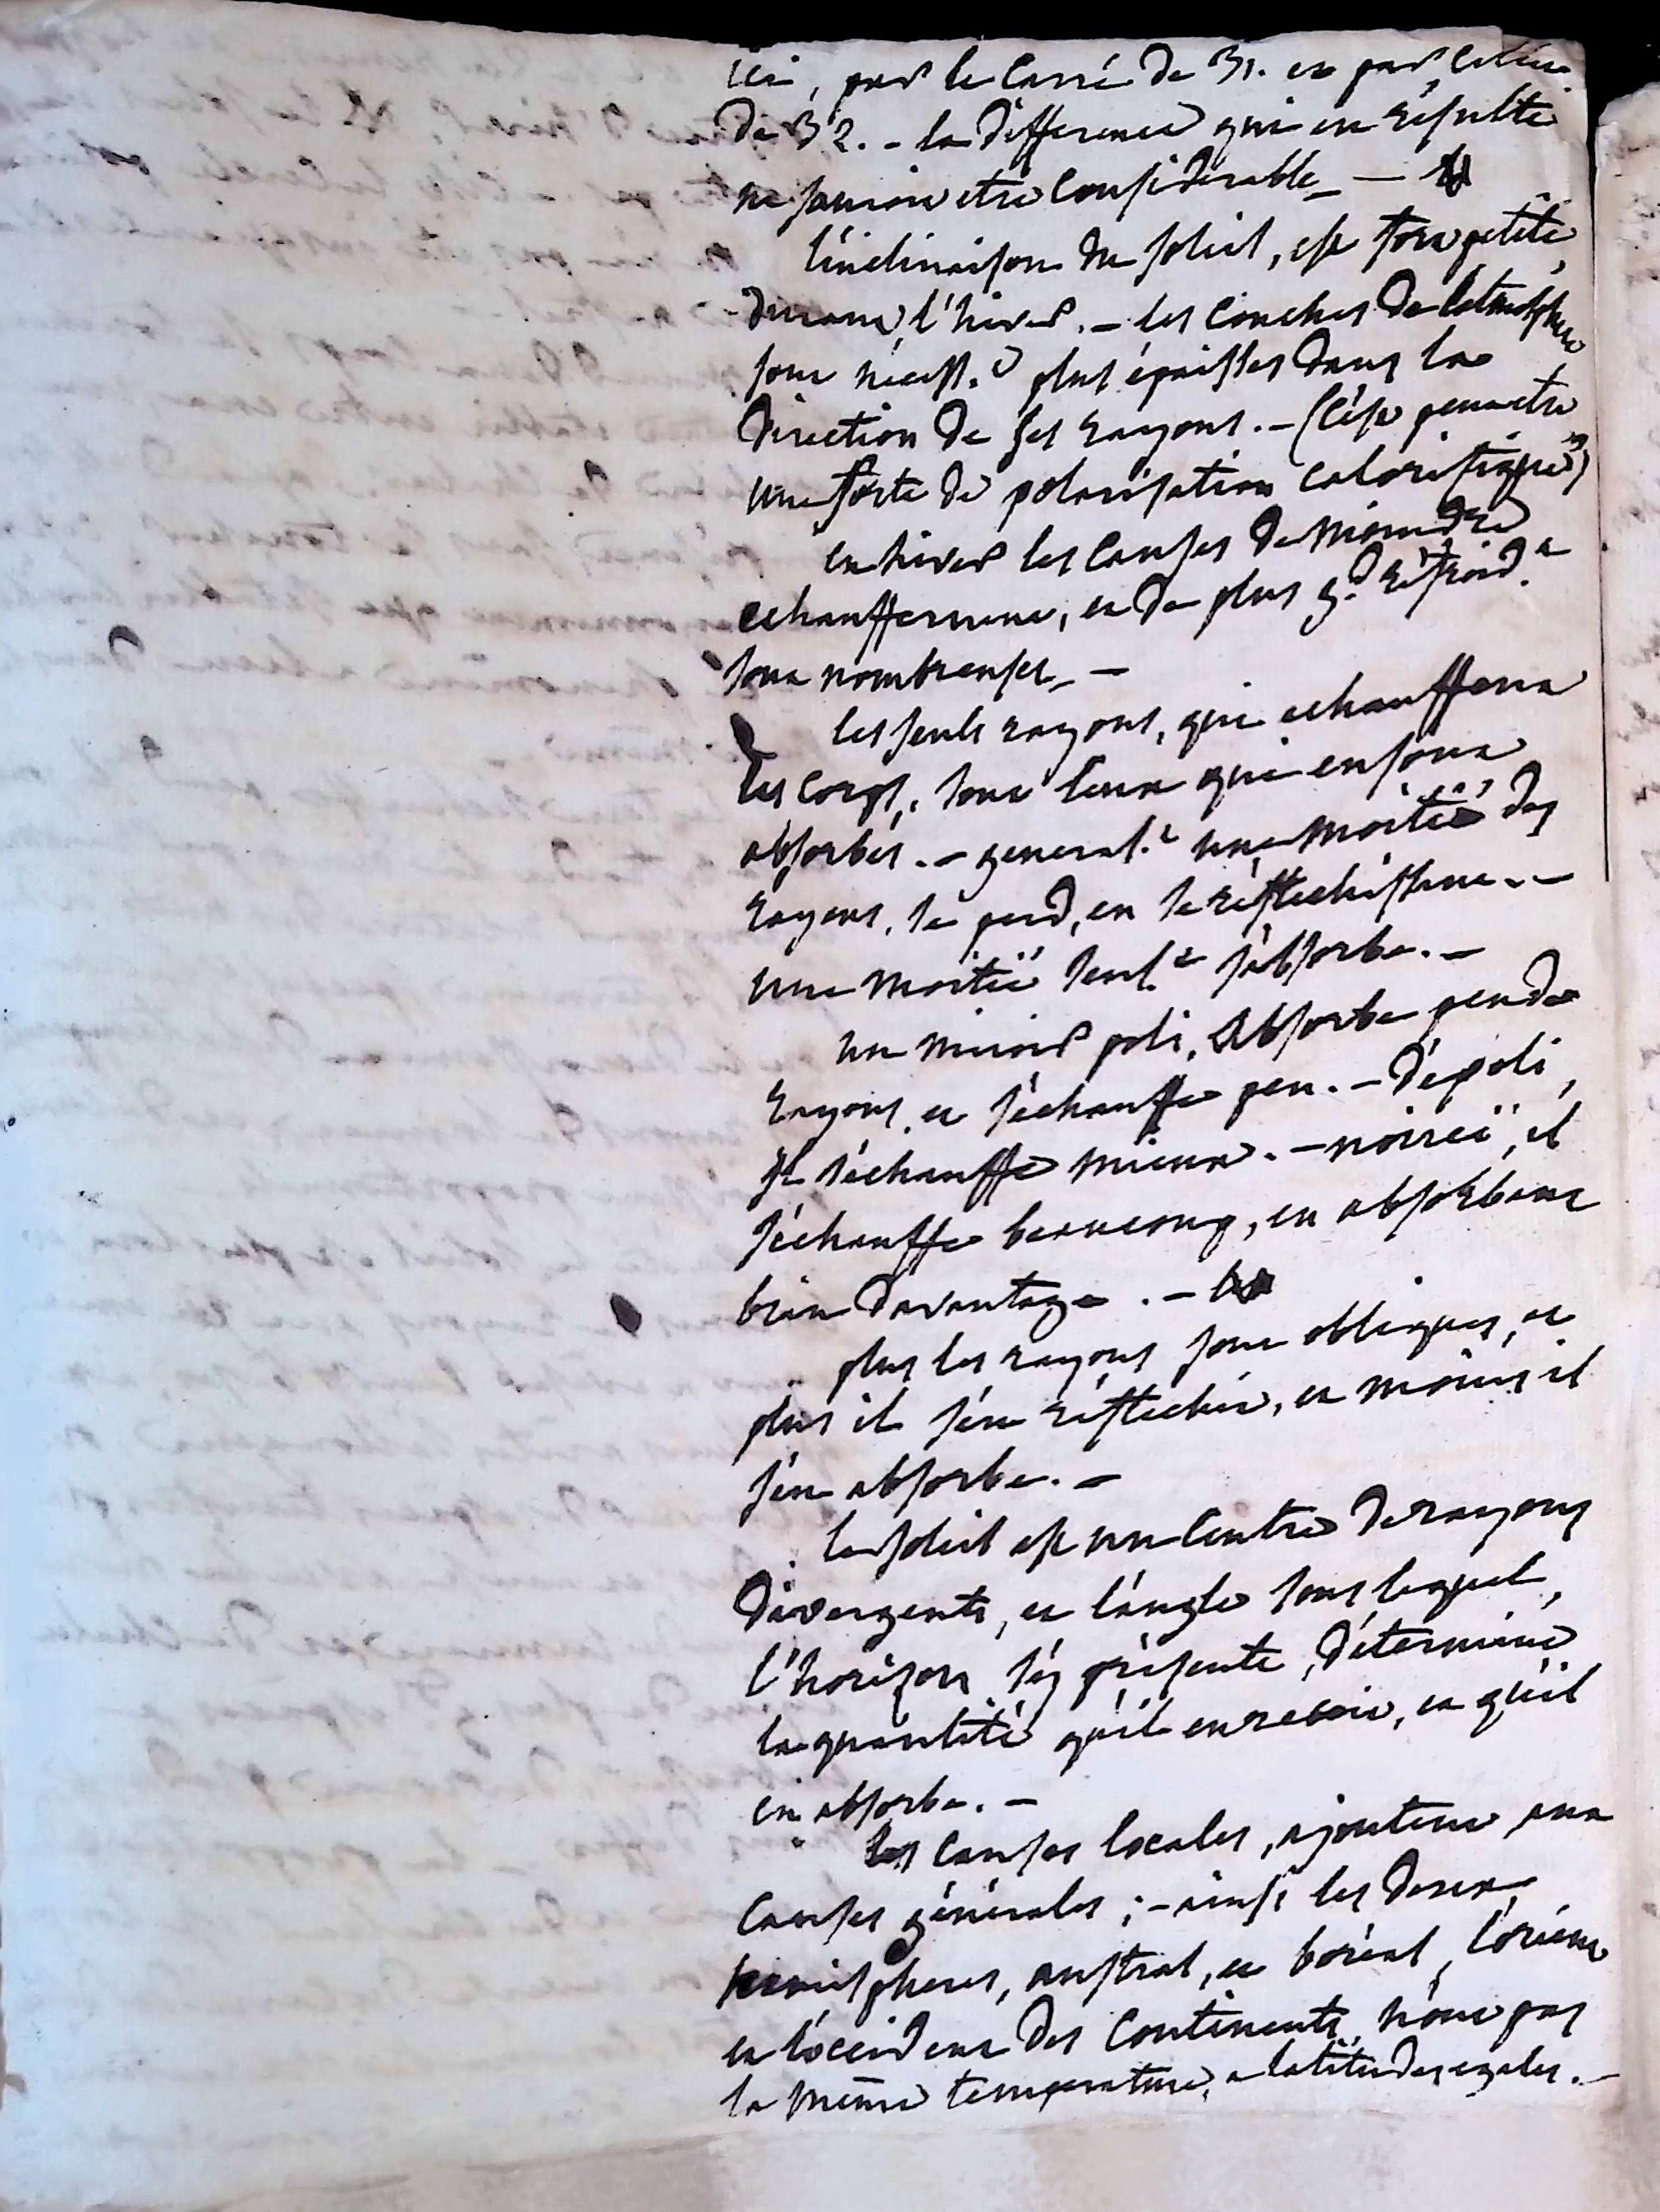 ici, par le carré de 31. et par celui
de 32. - la difference qui en résulte
ne sauroit etre considerable. -
l'inclinaison du soleil, est fort petite,
durant l'hiver. - les couches de latmosphere
sont necess.t plus épaisses dans la
direction de ses rayons. - (c'est peut etre
une sorte de polarisation calorifique)
en hiver les causes de moindre
echauffement, et de plus g.d refroid.t
sont nombreuses. -
les seuls rayons, qui echauffent
les corps, sont ceux qui en sont
absorbés. - general.t une moitié des
rayons, se perd, en se réflechissant. -
une moitié seul.t s'absorbe. -
un miroir poli, absorbe peu de
rayons, et s'échauffe peu. - dépoli,
il s'échauffe mieux. - noirci, il
s'échauffe beaucoup, en absorbant
bien davantage. -
plus les rayons sont obliques, et
plus il s'en réflechit, et moins il
s'en absorbe. -
le soleil est un centre de rayons
divergents, et l'angle sous lequel,
l'horison s'y présente, détermine
la quantité qu'il en reçoit, et qu'il
en absorbe. -
les causes locales, ajoutent aux
causes générales ; - ainsi les deux
hemispheres, austral, et boréal, l'orient
et l'occident des continents, n'ont pas
la même temperature, a latitudes egales. -